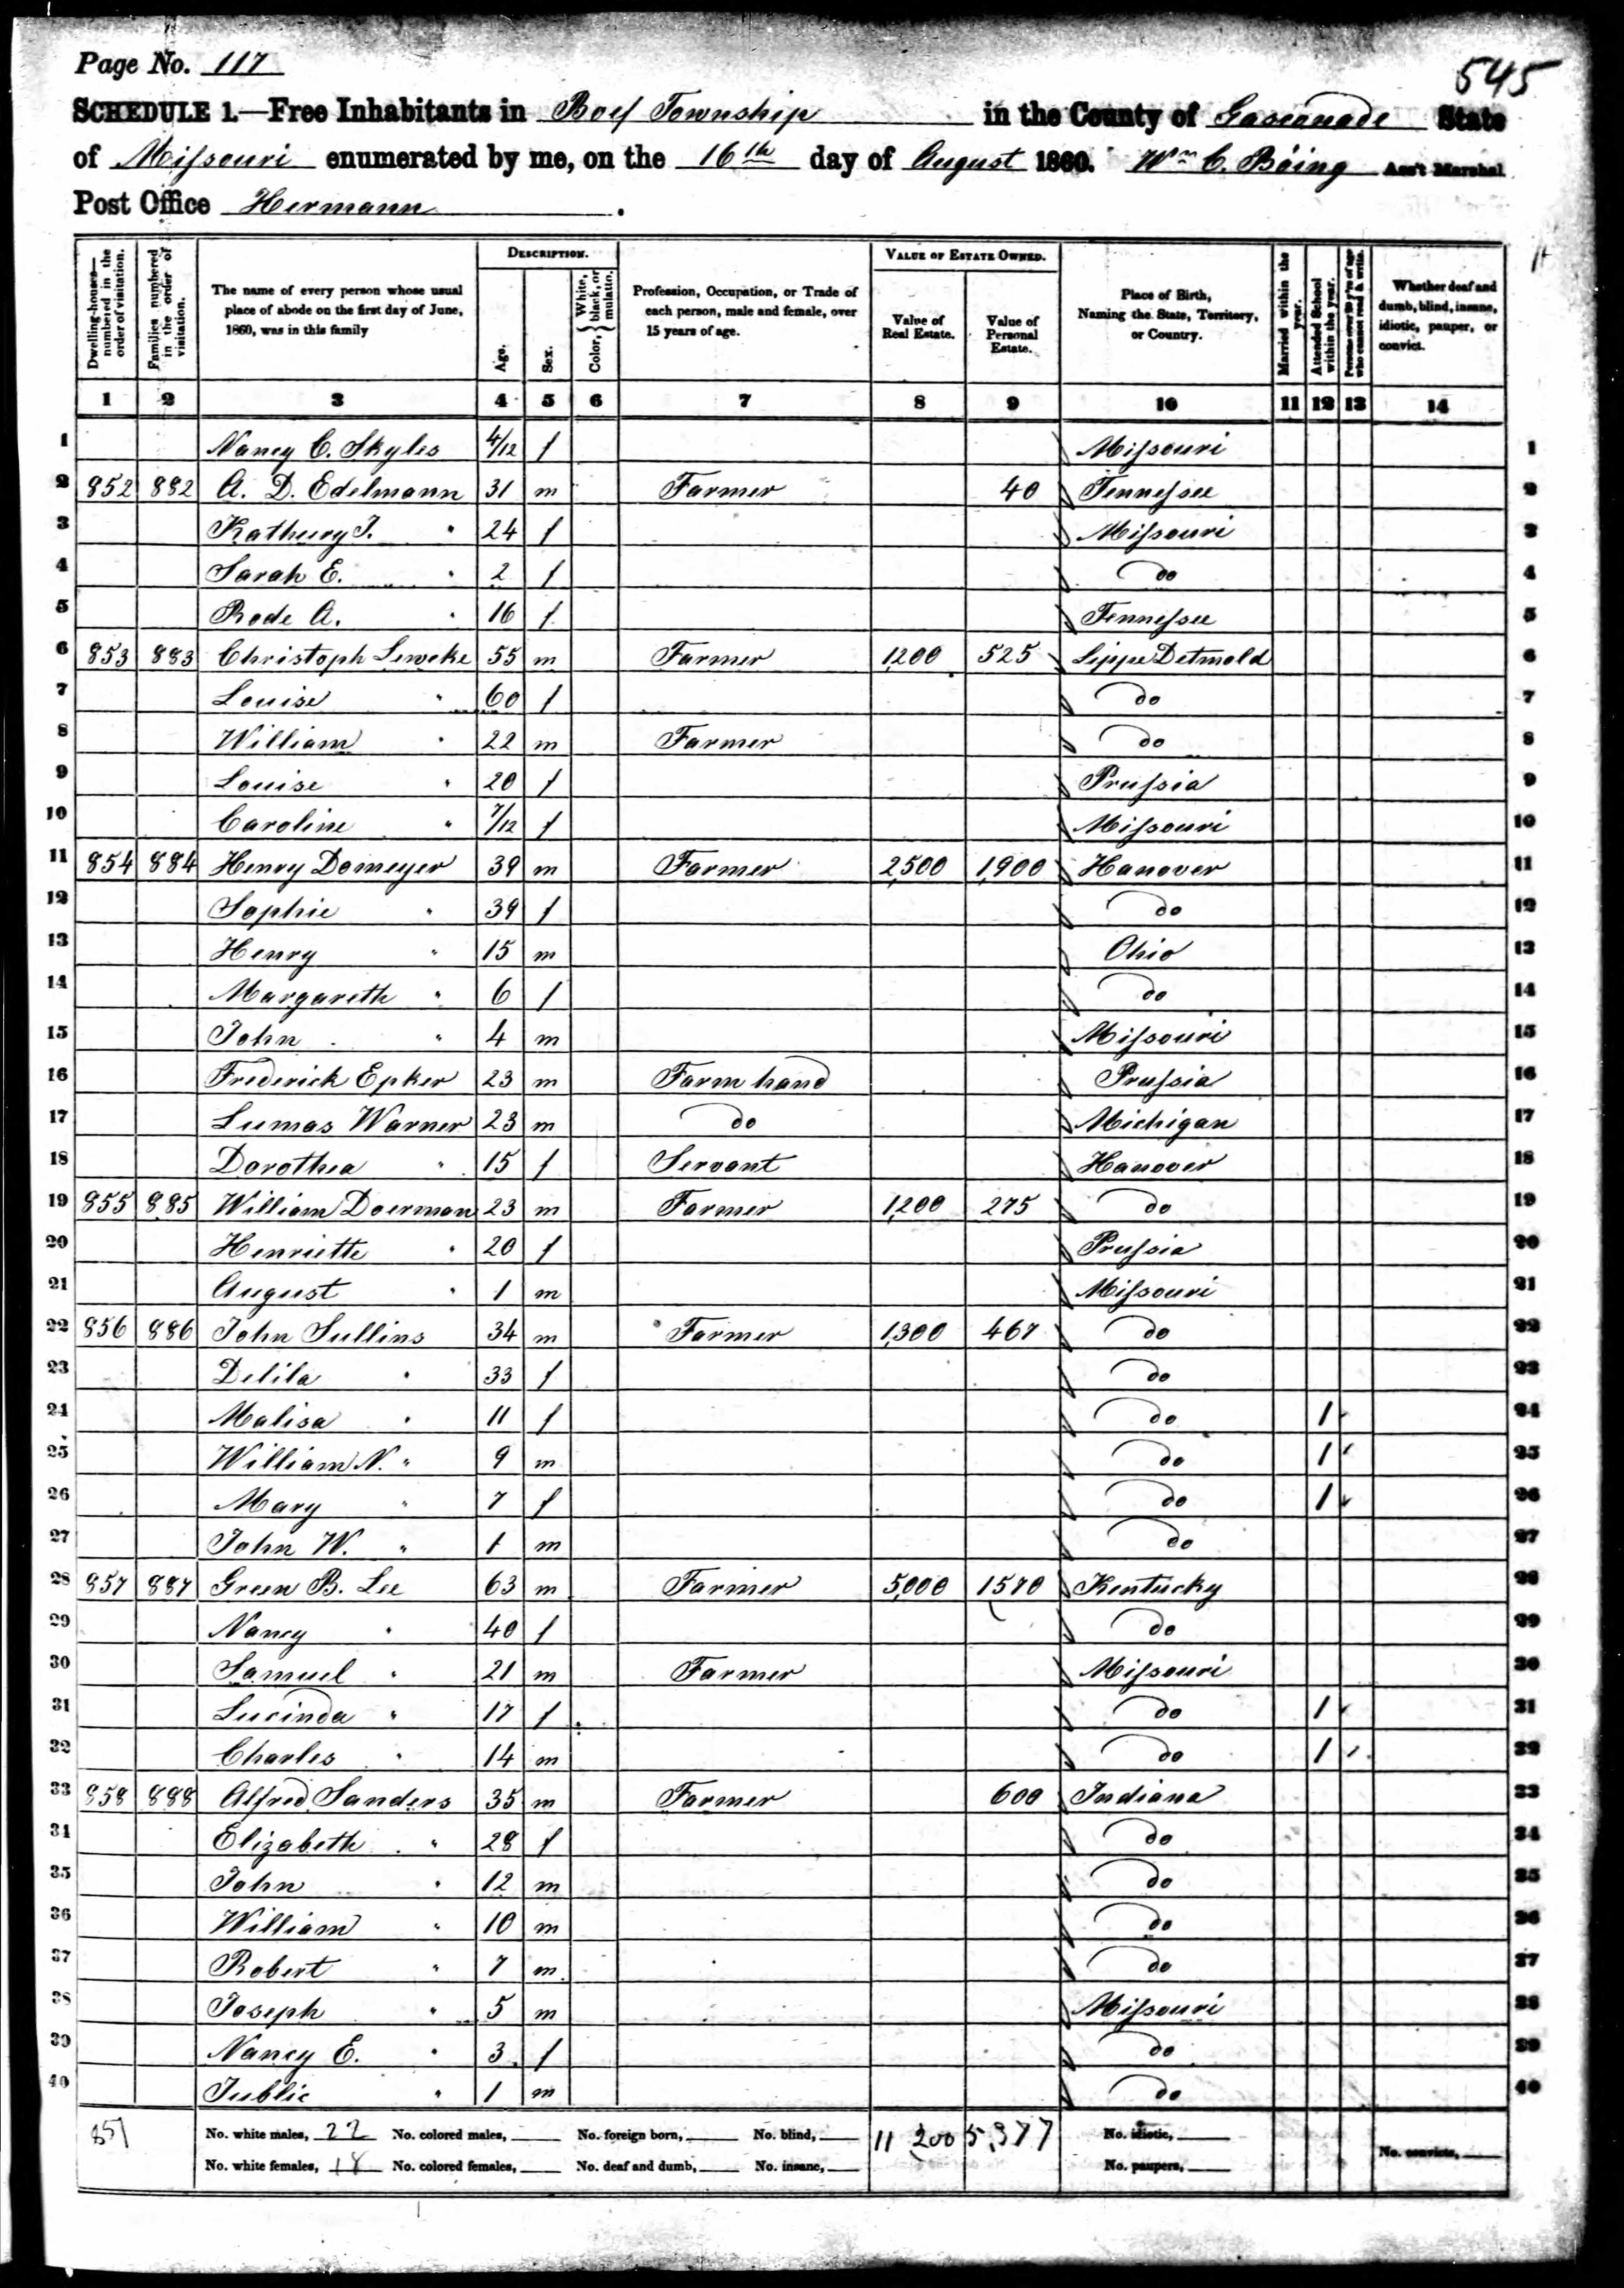 Page No. 117
545
SCHEDULE 1.—Free Inhabitants in Boef Township in the County of Gasconade State
of Missouri enumerated by me, on the 16th day of August 1860. Wm C. Böing Ass't Marshal
Post Office Hermann.
Dwelling-houses—numbered in the order of visitation.
Families numbered in the order of visitation.
The name of every person whose usual place of abode on the first day of June, 1860, was in this family
DESCRIPTION.
Age.
Sex.
Color, White, black, or mulatto.
Profession, Occupation, or Trade of each person, male and female, over 15 years of age.
VALUE OF ESTATE OWNED.
Value of Real Estate.
Value of Personal Estate.
Place of Birth, Naming the State, Territory, or Country.
Married within the year.
Attended School within the year.
Persons over 20 y'rs of age who cannot read & write.
Whether deaf and dumb, blind, insane, idiotic, pauper, or convict.
1 2 3 4 5 6 7 8 9 10 11 12 13 14
1 Nancy C. Skyles 4/12 f Missouri 1
2 852 882 A. D. Edelmann 31 m Farmer 40 Tennessee 2
3 J. " 24 f Missouri 3
4 Sarah E. " 2 f do 4
5 Rode A. " 16 f Tennessee 5
6 853 883 Christoph Leweke 55 m Farmer 1200 525 Lippe Detmold 6
7 Louise " 60 f do 7
8 William " 22 m Farmer do 8
9 Louise " 20 f Prussia 9
10 Caroline " 7/12 f Missouri 10
11 854 884 Henry Domeyer 39 m Farmer 2,500 1,900 Hanover 11
12 Sophie " 39 f do 12
13 Henry " 15 m Ohio 13
14 Margareth " 6 f do 14
15 John " 4 m Missouri 15
16 Frederick Epker 23 m Farm hand Prussia 16
17 Lumas Warner 23 m do Michigan 17
18 Dorothea " 15 f Servant Hanover 18
19 855 885 William Doerman 23 m Farmer 1,200 275 do 19
20 Henriette " 20 f Prussia 20
21 August " 1 m Missouri 21
22 856 886 John Sullins 34 m Farmer 1,300 467 do 22
23 Delila " 33 f do 23
24 Malisa " 11 f do 1 24
25 William N. " 9 m do 1 25
26 Mary " 7 f do 1 26
27 John W. " 1 m do 27
28 857 887 Green B. Lee 63 m Farmer 5,000 1570 Kentucky 28
29 Nancy " 40 f do 29
30 Samuel " 21 m Farmer Missouri 30
31 Lucinda " 17 f do 1 31
32 Charles " 14 m do 1 32
33 858 888 Alfred Sanders 35 m Farmer 600 Indiana 33
34 Elizabeth " 28 f do 34
35 John " 12 m do 35
36 William " 10 m do 36
37 Robert " 7 m do 37
38 Joseph " 5 m Missouri 38
39 Nancy E. " 3 f do 39
40 Jublic " 1 m do 40
857 No. white males, 22 No. colored males, No. foreign born, No. blind, 11 200 5,377 No. idiotic,
No. white females, 18 No. colored females, No. deaf and dumb, No. insane, No. paupers, No. convicts,